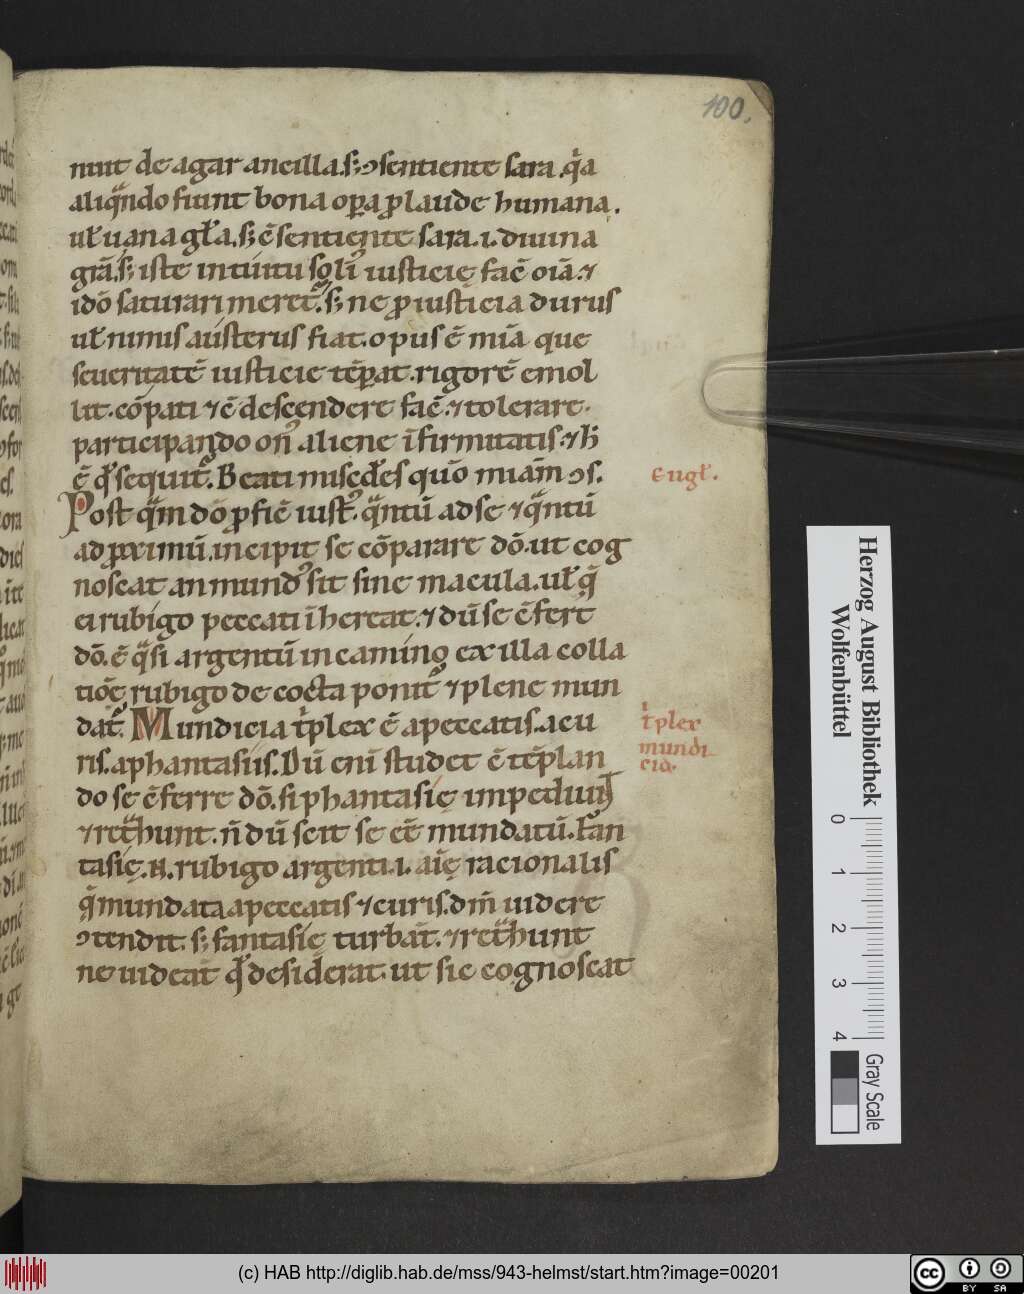 100.
nuit de agar ancilla. s; ↄsentiente sara. q̇a
aliq̈ndo fiunt bona oꝑa ꝓ laude humana.
uł uana gła. s; ē sentiente sara .i. diuina
grā. s; iste intuitu soliꝰ iusticię facē oīa. ⁊
idō saturari meret᷑. s; ne ꝓ iusticia durus
uł nimis austerus fiat. opus ē mīa que
seueritatē iusticie tēꝑat. rigorē emol
lit. cōpati ⁊ ē descendere facē. ⁊ tolerare.
participando on̄ aliene īfirmitatis. ⁊ ħ
ē qđ sequit᷑. Beati misedes quō miam̄ ↄs.
Post q̈m dō ꝓficē iust᷑. q̈ntū ad se ⁊ q̈ntū
ad ꝓximū. incipit se cōparare dō. ut cog
noscat an mundꝰ sit sine macula. uł q̇
ei rubigo peccati īhereat. ⁊ dū se ēfert
dō. ē q̈si argentū in camino ex illa colla
tiōe rubigo de cocta ponit᷑ ⁊ plene mun
dat᷑. Mundicia tṙplex ē a peccatis. a cu
ris. a phantasiis. Dū eni studet ē tēplan
do se ēferre dō. si phantasię impediun̄t
⁊ reẗhunt. n̄ dū scit se eē mundatū. Fan
tasię .N. rubigo argenti .i. aīę racionalis
q̇ mundata a peccatis ⁊ curis. dm̄ uidere
ↄtendit. s; fantasię turbat. ⁊ reẗhunt
ne uideat qđ desiderat. ut sic cognoscat
eugł.
tṙplex
mundi
cia.
Herzog August Bibliothek
Wolfenbüttel
0 1 2 3 4
Gray Scale
(c) HAB http://diglib.hab.de/mss/943-helmst/start.htm?image=00201
cc BY SA